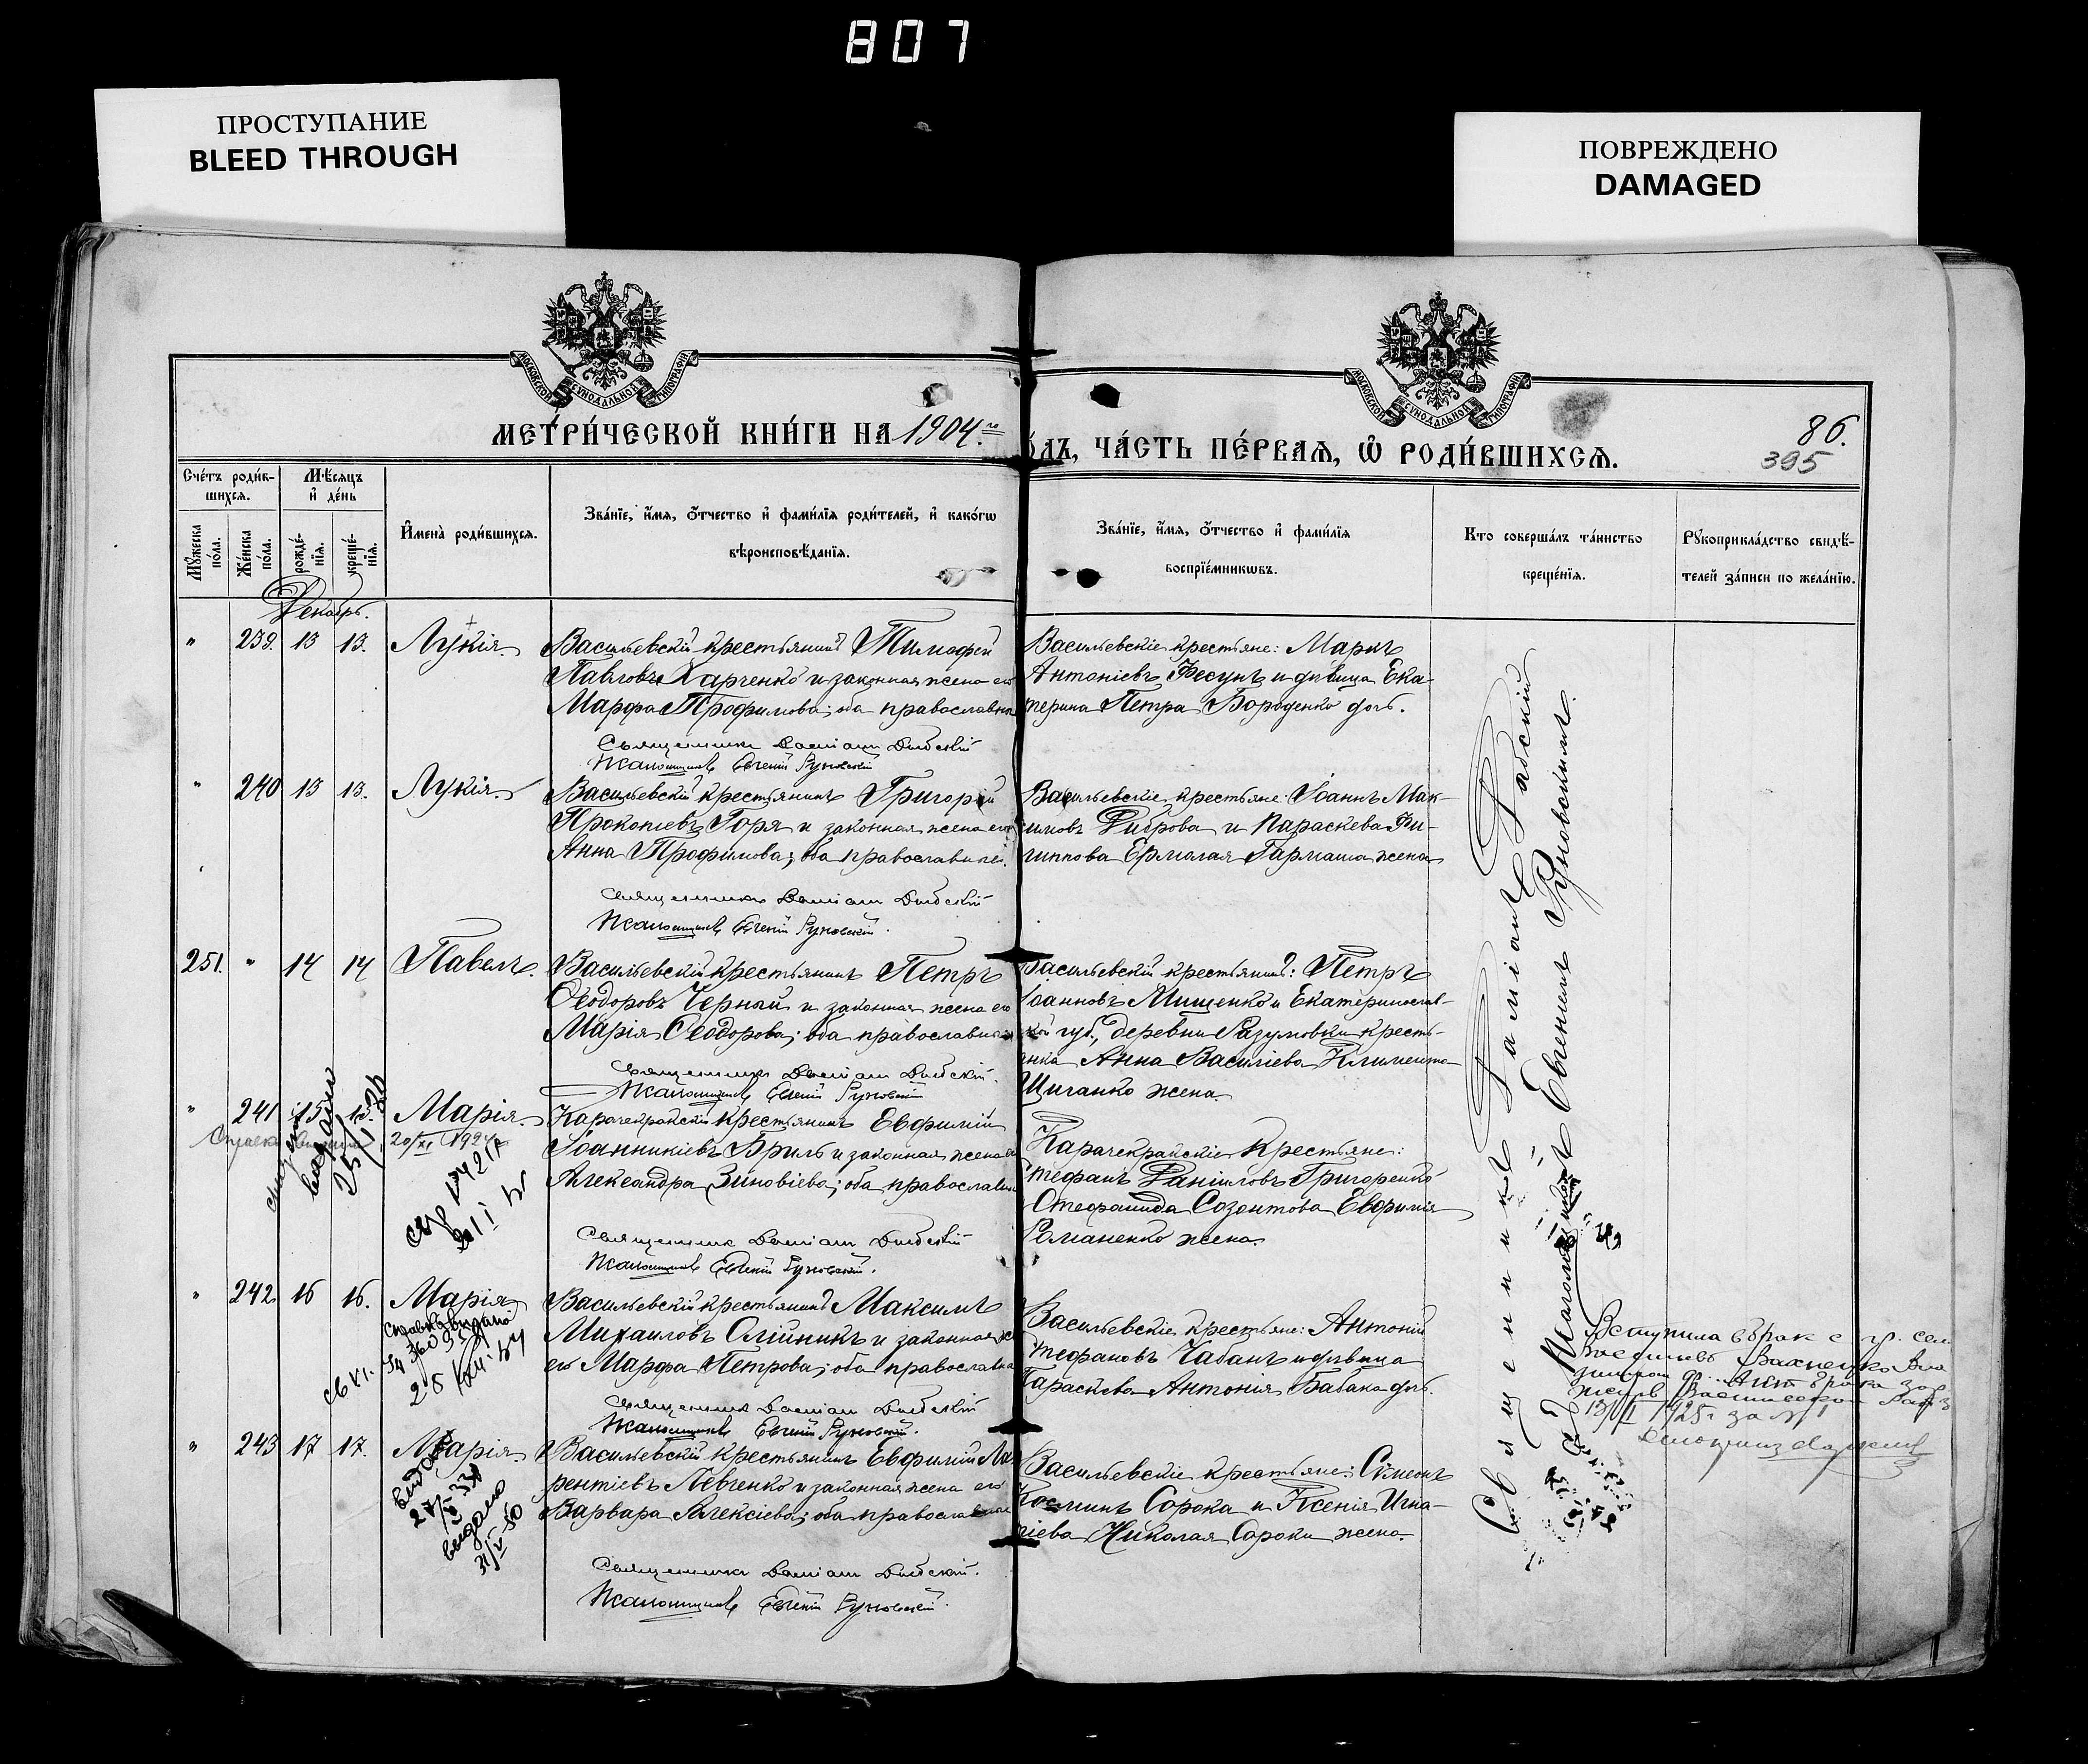 807
ПРОСТУПАНИЕ
BLEED THROUGH
ПОВРЕЖДЕНО
DAMAGED
МОСКОВСКОЙ СѴНОДАЛЬНОЙ ТИПОГРАФІИ
МОСКОВСКОЙ СѴНОДАЛЬНОЙ ТИПОГРАФІИ
МЕТРИ́ЧЕСКОЙ КНИ́ГИ НА 1904.го
ДЪ, ЧА́СТЬ ПЕ́РВАѦ, Ѡ҆ РОДИ́ВШИХСѦ.
86.
395
Сче́тъ роди́в-
шихся.
Мѣ́сяцъ
и҆ де́нь
Мꙋ́жеска
по́ла.
Же́нска
по́ла.
рожде́-
нїя.
креще́-
нїя.
И҆мена̀ роди́вшихся.
Зва́нїе, и҆́мя, о҆́тчество и҆ фами́лїя роди́телей, и҆ како́гѡ
вѣроисповѣ́данїя.
Зва́нїе, и҆́мя, о҆́тчество и҆ фами́лїя
воспрїе́мникѡвъ.
Кто соверша́лъ та́инство
креще́нїя.
Рꙋкоприкла́дство свидѣ́-
телей за́писи по жела́нїю.
Декабрь.
" 239. 13 13. Лукія.
Васильевскій крестьянинъ Тимофей
Павловъ Харченко и законная жена его
Марфа Трофимова; оба православные
Священникъ Даміанъ Дибскій
Псаломщикъ Евгеній Руновскій
Васильевскіе крестьяне: Маркъ
Антоніевъ Фесунъ и дѣвица Ека-
терина Петра Бороденко дочь.
" 240 13 13. Лукія.
Васильевскій крестьянинъ Григорій
Прокопіевъ Горя и законная жена его
Анна Трофимова; оба православные.
Священникъ Даміанъ Дибскій
Псаломщикъ Евгеній Руновскій.
Васильевскіе крестьяне: Іоаннъ Мак-
симовъ Диброва и Параскева Фи-
липпова Ермолая Гармаша жена
251. " 14 14 Павелъ.
Васильевскій крестьянинъ Петръ
Ѳеодоровъ Черный и законная жена его
Марія Ѳеодорова; оба православные
Священникъ Даміанъ Дибскій.
Псаломщикъ Евгеній Руновскій
Васильевскій крестьянинъ: Петръ
Іоанновъ Мищенко и Екатеринослав-
ской губ., деревни Разумовки кресть-
янка Анна Василіева Климента
Циганко жена.
" 241 15 15. Марія.
20/XI 1924
Карачекракскій крестьянинъ Евфимій
Іоанникіевъ Бриль и законная жена его
Александра Зиновіева; оба православные
Священникъ Даміанъ Дибскій
Псаломщикъ Евгеній Руновскій.
Карачекракскіе крестьяне:
Стефанъ Даніиловъ Григоренко
Стефанида Созонтова Евфимія
Романенко жена.
" 242. 16 16. Марія
Справка выдана
Васильевскій крестьянинъ Максимъ
Михаиловъ Олійникъ и законная жена
его Марфа Петрова; оба православные
Священникъ Даміанъ Дибскій
Псаломщикъ Евгеній Руновскій.
Васильевскіе крестьяне: Антоній
Стефановъ Чабанъ и дѣвица
Параскева Антонія Бабака дочь.
Вступила в брак с гр. села
" 243 17 17. Марія.
выдано
31/V 50
Васильевскій крестьянинъ Евфимій Лав-
рентіевъ Левченко и законная жена его
Варвара Алексіева; оба православные
Священникъ Даміанъ Дибскій.
Псаломщикъ Евгеній Руновскій.
Васильевскіе крестьяне: Симеонъ
Косминъ Сорока и Ксенія Игна-
тіева Николая Сороки жена.
Священникъ Даміанъ Дибскій
Псаломщикъ Евгеній Руновскій.